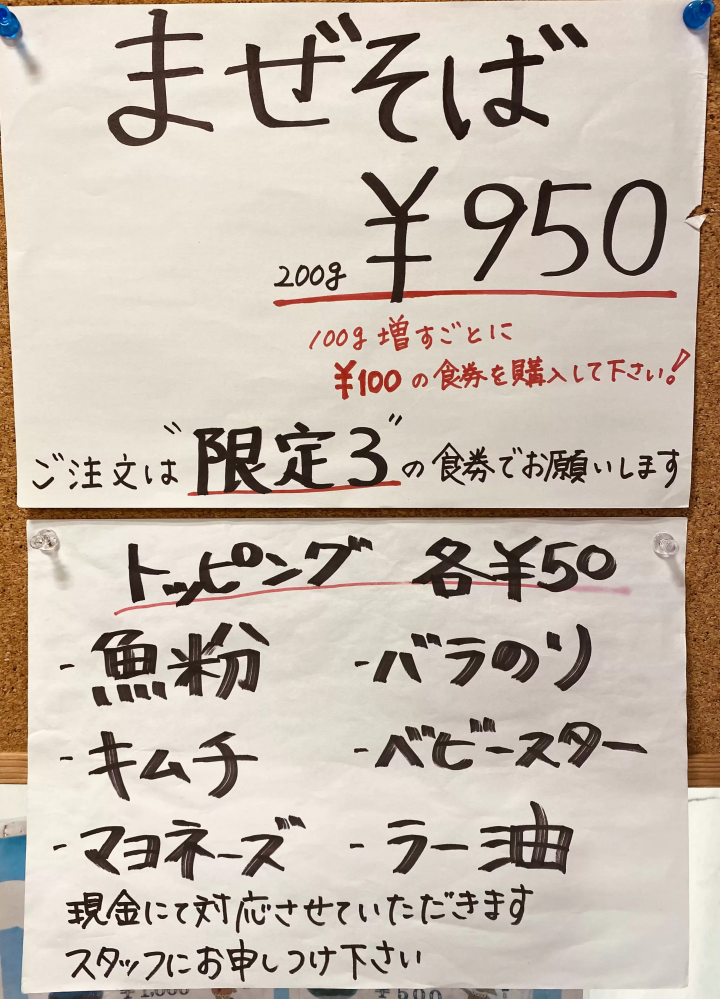 まぜそば
200g ¥950
100g 増すごとに
¥100 の食券を購入して下さい!
ご注文は "限定3" の食券でお願いします
トッピング 各¥50
- 魚粉 - バラのり
- キムチ - ベビースター
- マヨネーズ - ラー油
現金にて対応させていただきます
スタッフにお申しつけ下さい
¥1,000 ¥500